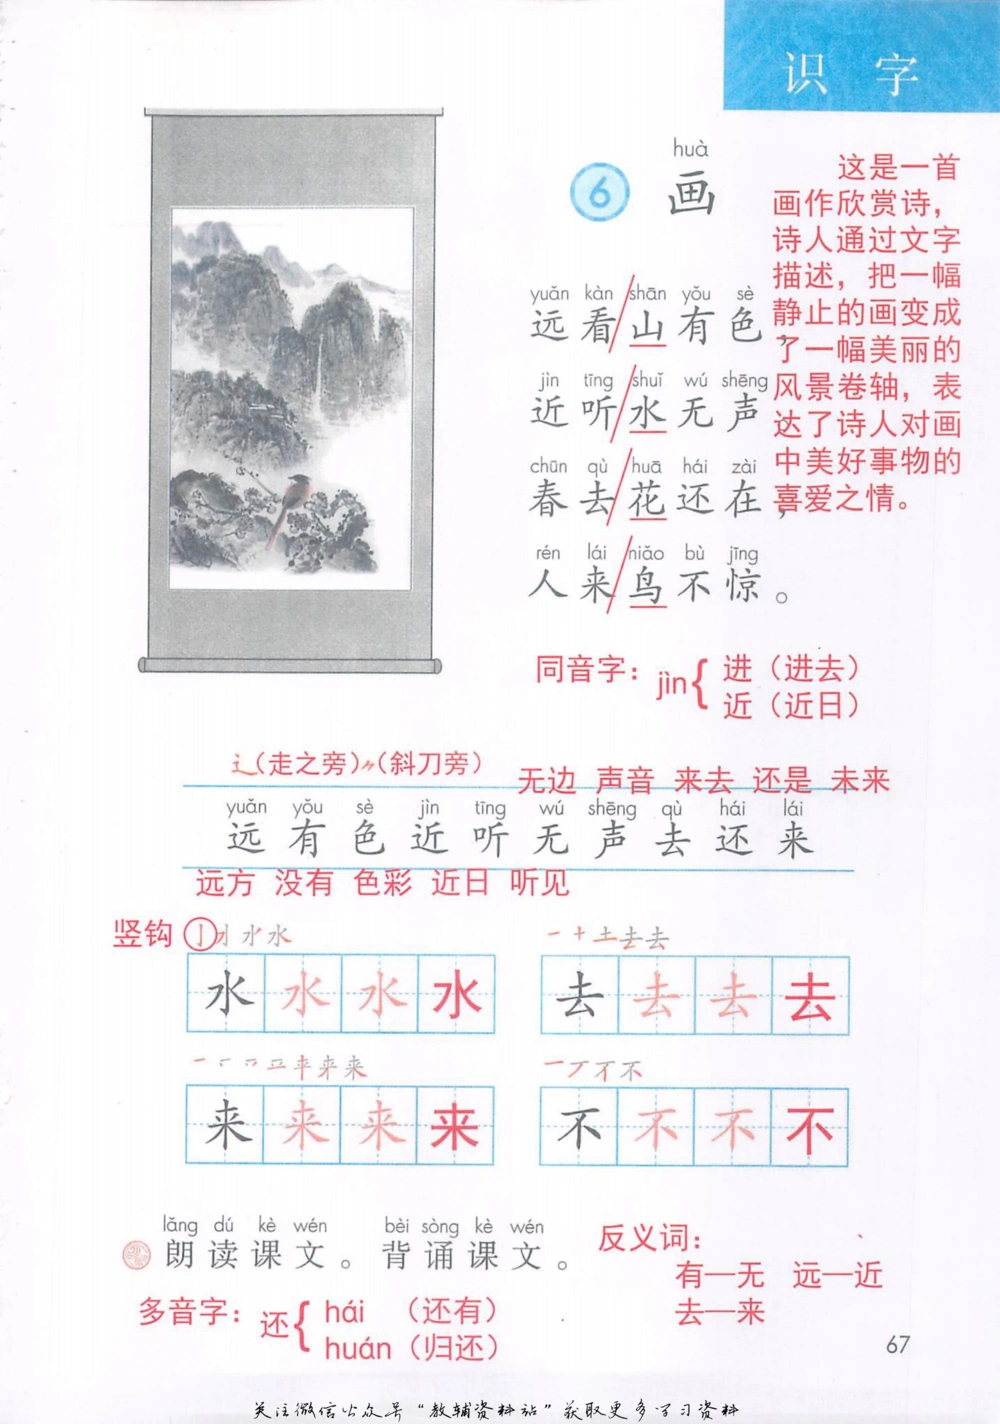 识 字
huà
6 画
这是一首
画作欣赏诗，
诗人通过文字
描述，把一幅
静止的画变成
了一幅美丽的
风景卷轴，表
达了诗人对画
中美好事物的
喜爱之情。
yuǎn kàn shān yǒu sè
远看/山有色，
jìn tīng shuǐ wú shēng
近听/水无声
chūn qù huā hái zài
春去/花还在，
rén lái niǎo bù jīng
人来/鸟不惊。
同音字：jìn{进（进去）
近（近日）
辶（走之旁）〃（斜刀旁）
无边 声音 来去 还是 未来
yuǎn yǒu sè jìn tīng wú shēng qù hái lái
远 有 色 近 听 无 声 去 还 来
远方 没有 色彩 近日 听见
竖钩
水 水 水 水
去 去 去 去
来 来 来 来
不 不 不 不
lǎng dú kè wén bèi sòng kè wén
朗读课文。背诵课文。
反义词：
有—无 远—近
去—来
多音字：还{hái （还有）
huán（归还）
67
关注微信公众号“教辅资料站”获取更多学习资料